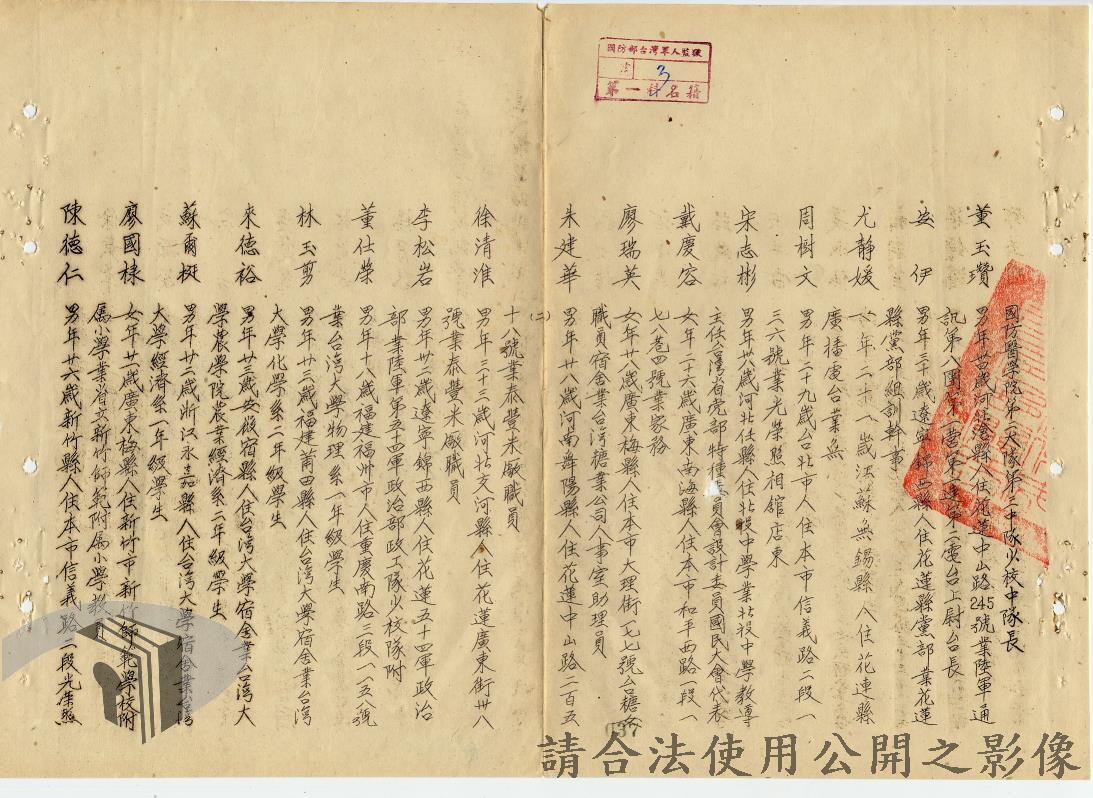 國防部台灣軍人監獄
3
第一科名籍
國防醫學院第二大隊第三中隊少校中隊長
董玉瓚 男年卅四歲河任邱縣人住花蓮中山路245號業陸軍通
訊第八團第一營第一連第二電台上尉台長
安伊 男年三十歲遼寧錦西縣人住花蓮縣黨部業花蓮
縣黨部組訓幹事
尤靜媛 女年二十八歲江蘇無錫縣人住花連縣
廣播電台業無
周樹文 男年二十九歲台北市人住本市信義路二段一
三六號業光榮照相館店東
宋志彬 男年卅八歲河北任縣人住北投中學業北投中學教導
主任台灣省党部特種委員會設計委員國民大會代表
戴慶容 女年二十六歲廣東南海縣人住本市和平西路一段一
七八巷四號業家務
廖瑞英 女年廿八歲廣東梅縣人住本市大理街一七七號台糖公
職員宿舍業台灣糖業公司人事室助理員
朱建華 男年廿八歲河南舞陽縣人住花蓮中山路二百五
(二)
十八號業泰豐米廠職員
徐清淮 男年三十三歲河北交河縣人住花蓮廣東街卅八
號業泰豐米廠職員
李松岩 男年卅二歲遼寧錦西縣人住花蓮五十四軍政治
部業陸軍第五十四軍政治部政工隊少校隊附
董仕榮 男年十八歲福建福州市人住重慶南路二段一一五號
業台灣大學物理系一年級學生
林玉剪 男年廿三歲福建莆田縣人住台灣大學宿舍業台灣
大學化學系二年級學生
來德裕 男年廿三歲安徽宿縣人住台灣大學宿舍業台灣大
學農學院農業經濟系二年級學生
蘇爾挺 男年廿二歲浙江永嘉縣人住台灣大學宿舍業台灣
大學經濟系一年級學生
廖國棣 女年廿一歲廣東梅縣人住新竹市新竹師範學校附
屬小學業省立新竹師範附屬小學教員
陳德仁 男年廿六歲新竹縣人住本市信義路二段光榮照
037
請合法使用公開之影像